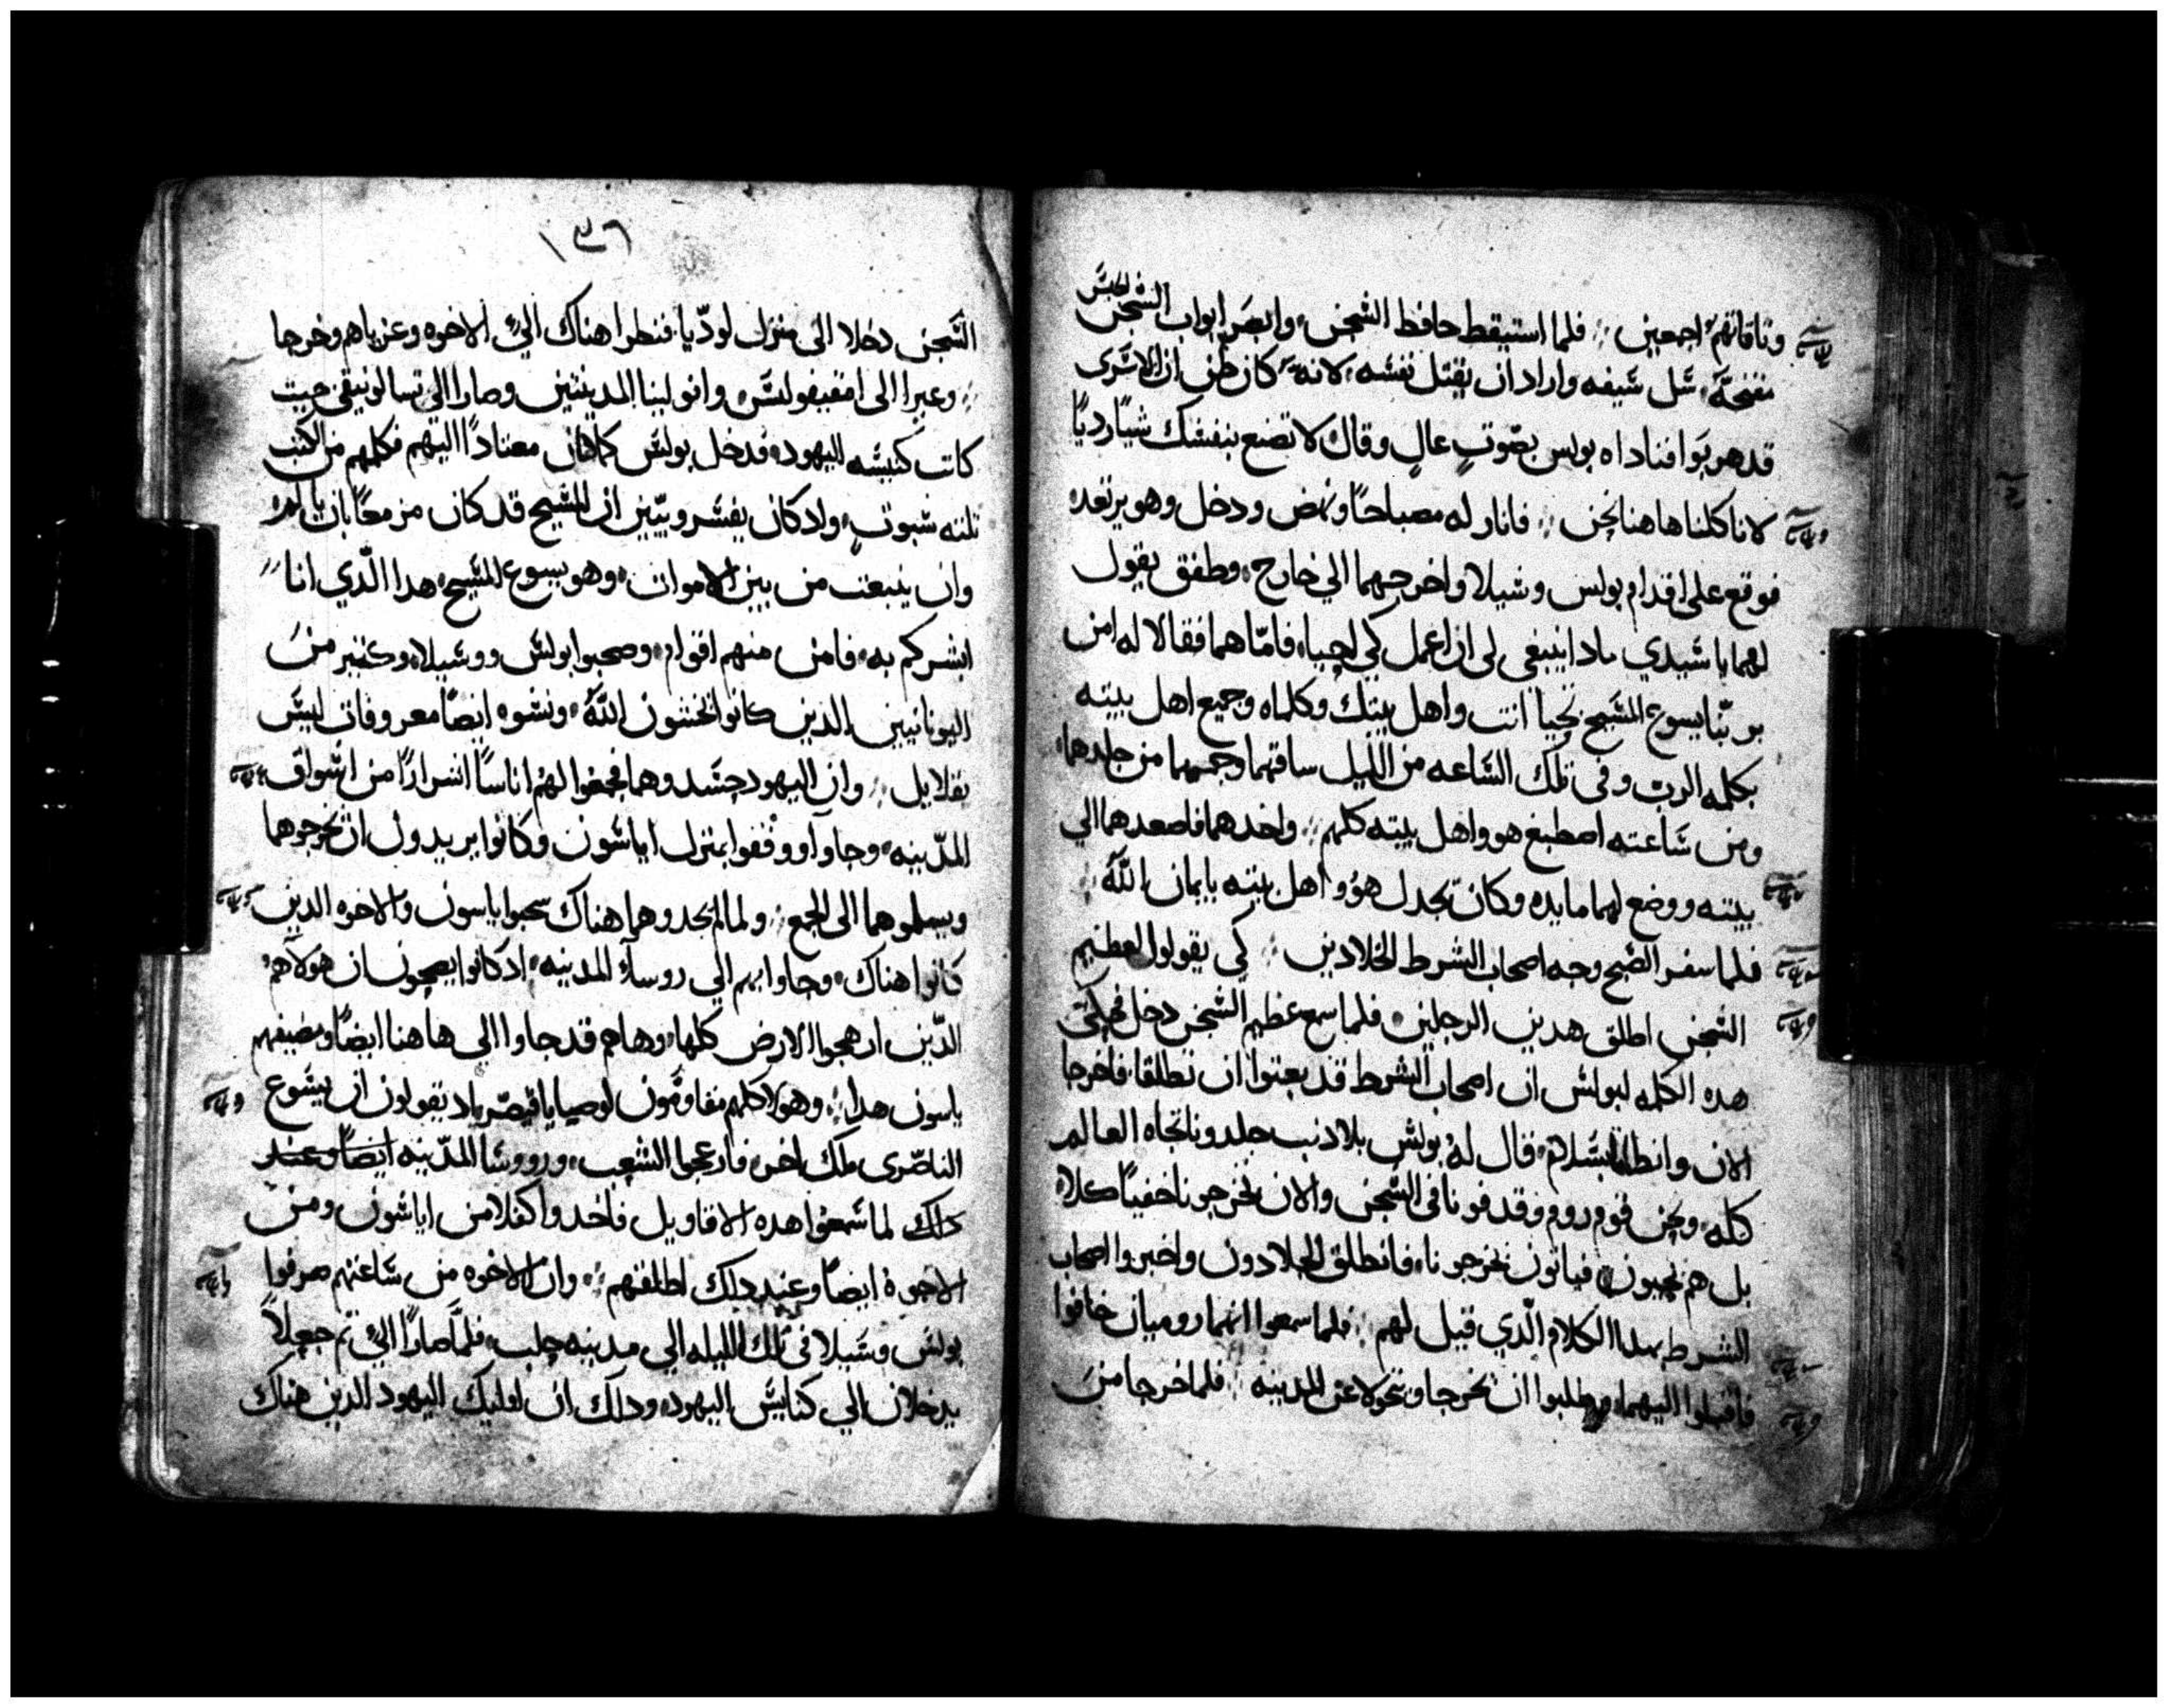 الحبس
وثاقاتهم اجمعين ፧ فلما استيقظ حافظ السّجن، وابصر ابواب السّجن
مفتحّة، سّل سّيفه واراد ان يقتل نفسّه، لانه كان ظن ان الاسّرى
قد هربوا فناداه بولس بصّوتٍ عالٍ وقال لا تصنع بنفسّك شياً رديّاً
لانا كلنا هاهنا نحن ፧ فانار له مصباحاً ونهض ودخل وهو يرتعد
فوقع على اقدام بولس وشيلا واخرجهما الي خارج، وطفق يقول
لهما يا سّيدي مادا ينبغي لى ان اعمل كي احيا، فامّا هما فقالا له امن
بربّنا يسوع المسّيح تحيا انت واهل بيتك وكلماه وجميع اهل بيته
بكلمه الرب وفى تلك السّاعه من الليل ساقهما وحمهما من جلدهما،
ومن سّاعته اصطبغ هو واهل بيته كلهم ፧ واخدهما فاصعدهما الي
بيته ووضع لهما مايده وكان يجدل هو واهل بيته بايمان اللّه ፧
فلما سفر الصّبح وجه اصحاب الشرط الجلادين ፧ كي يقولوا لعظيم
السّجن اطلق هدين الرجلين، فلما سمع عظيم السّجن دخل فحكى
هده الكلمه لبولسّ ان اصحاب الشرط قد بعتوا ان تطلقا، فاخرجا
الان وانطلقا بسّلام، قال له بولسّ بلا دنب جلدونا تجاه العالم
كله، ونحن قوم روم وقدفونا فى السّجن والان يخرجونا خفياً كلا،
بل هم يجيون، فياتون يخرجونا، فانطلق الجلادون واخبروا اصحاب
الشرط بهدا الكلام الّدي قيل لهم ፧ فلما سمعوا انهما روميان خافوا
فاقبلوا اليهما، وطلبوا ان يخرجا ويتحولا عن المدينه ፧ فلما خرجا من
١٣٦
السّجن دخلا الى منزل لودّيا، فنظرا هناك الي الاخوه وعزياهم وخرجا
፧ وعبرا الى امفيفوليسّ وانولينا المدينتين وصارا الي تسالونيقى حيت
كانت كنيسّه اليهود، فدخل بولسّ كما كان معتاداً اليهم فكلمهم من الكتب
تلته سبوت، واد كان يفسّر ويبّين ان المسّيح قد كان مزمعاً بان يالم،
وان ينبعت من بين الاموات، وهو يسوع المسّيح، هدا الّدي انا
ابشركم به، فامن منهم اقوام، وصحبوا بولسّ وسّيلا، وكتير من
اليونانيين الدين كانوا يخشون اللّه، ونسّوه ايضاً معروفات ليسّ
بقلايل ፧ وان اليهود حسّدوهما فجمعوا لهم اناساً اشراراً من اسّواق
المدّينه، وجاوا ووقفوا بمنزل اياسّون وكانوا يريدون ان يخرجوهما
ويسلموهما الى الجمع ፧ ولما لم يجدوهما هناك سّحبوا ياسون والاخوه الدين
كانوا هناك، وجاوا بهم الي روسآء المدينه، اد كانوا يصيحون ان هولاء هم
الدّين ارهجوا الارض كلها، وهاهم قد جاوا الي هاهنا ايضاً ومضيفهم
ياسون هدا، ፧ وهولا كلهم مقاومّون لوصايا قيصر، اد يقولون ان يسّوع
الناصّرى ملك اخر، فارعجوا الشعب، وروسّا المدّينه ايضاً وعند
دلك لما سّمعوا هده الاقاويل فاخدوا كفلا من اياسّون ومن
الاخوة ايضاً وعند دلك اطلقتهم ፧ وان الاخوه من سّاعتهم صرفوا
بولسّ وسّيلا فى تلك الليله الي مدينه حلب، فلمّا صارا الي تم جعلا
يدخلان الي كنايسّ اليهود، ودلك ان اوليك اليهود الدين هناك